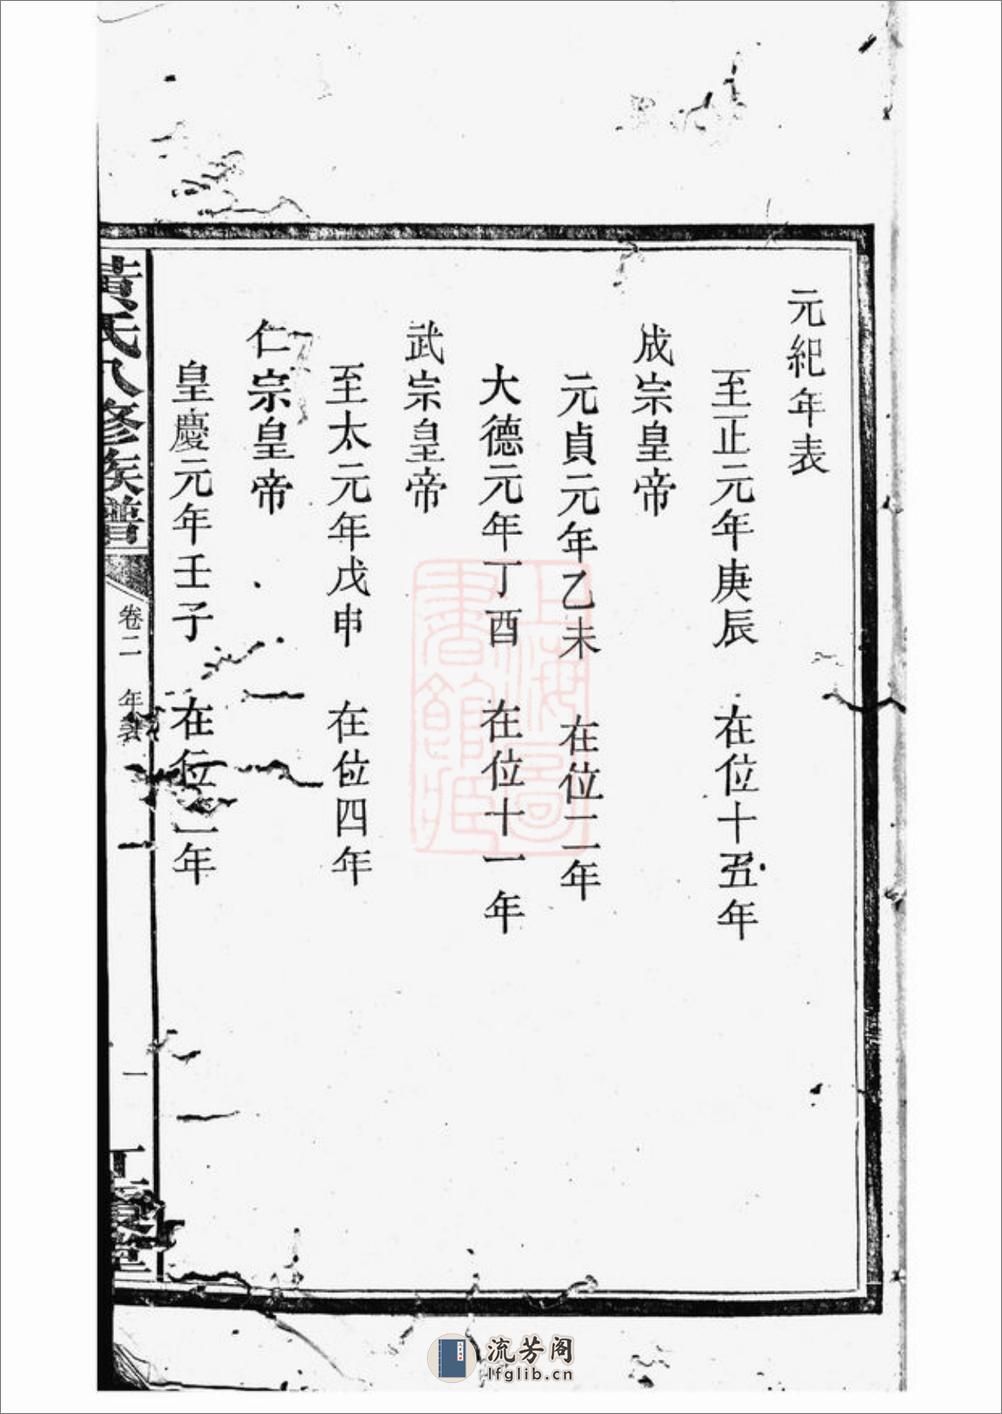 元紀年表
至正元年庚辰　在位十五年
成宗皇帝
元貞元年乙未　在位二年
大德元年丁酉　在位十一年
武宗皇帝
至太元年戊申　在位四年
仁宗皇帝
皇慶元年壬子　在位二年
黃氏八修族譜
卷二　年表
一
上海圖書館藏
流芳阁
lfglib.cn